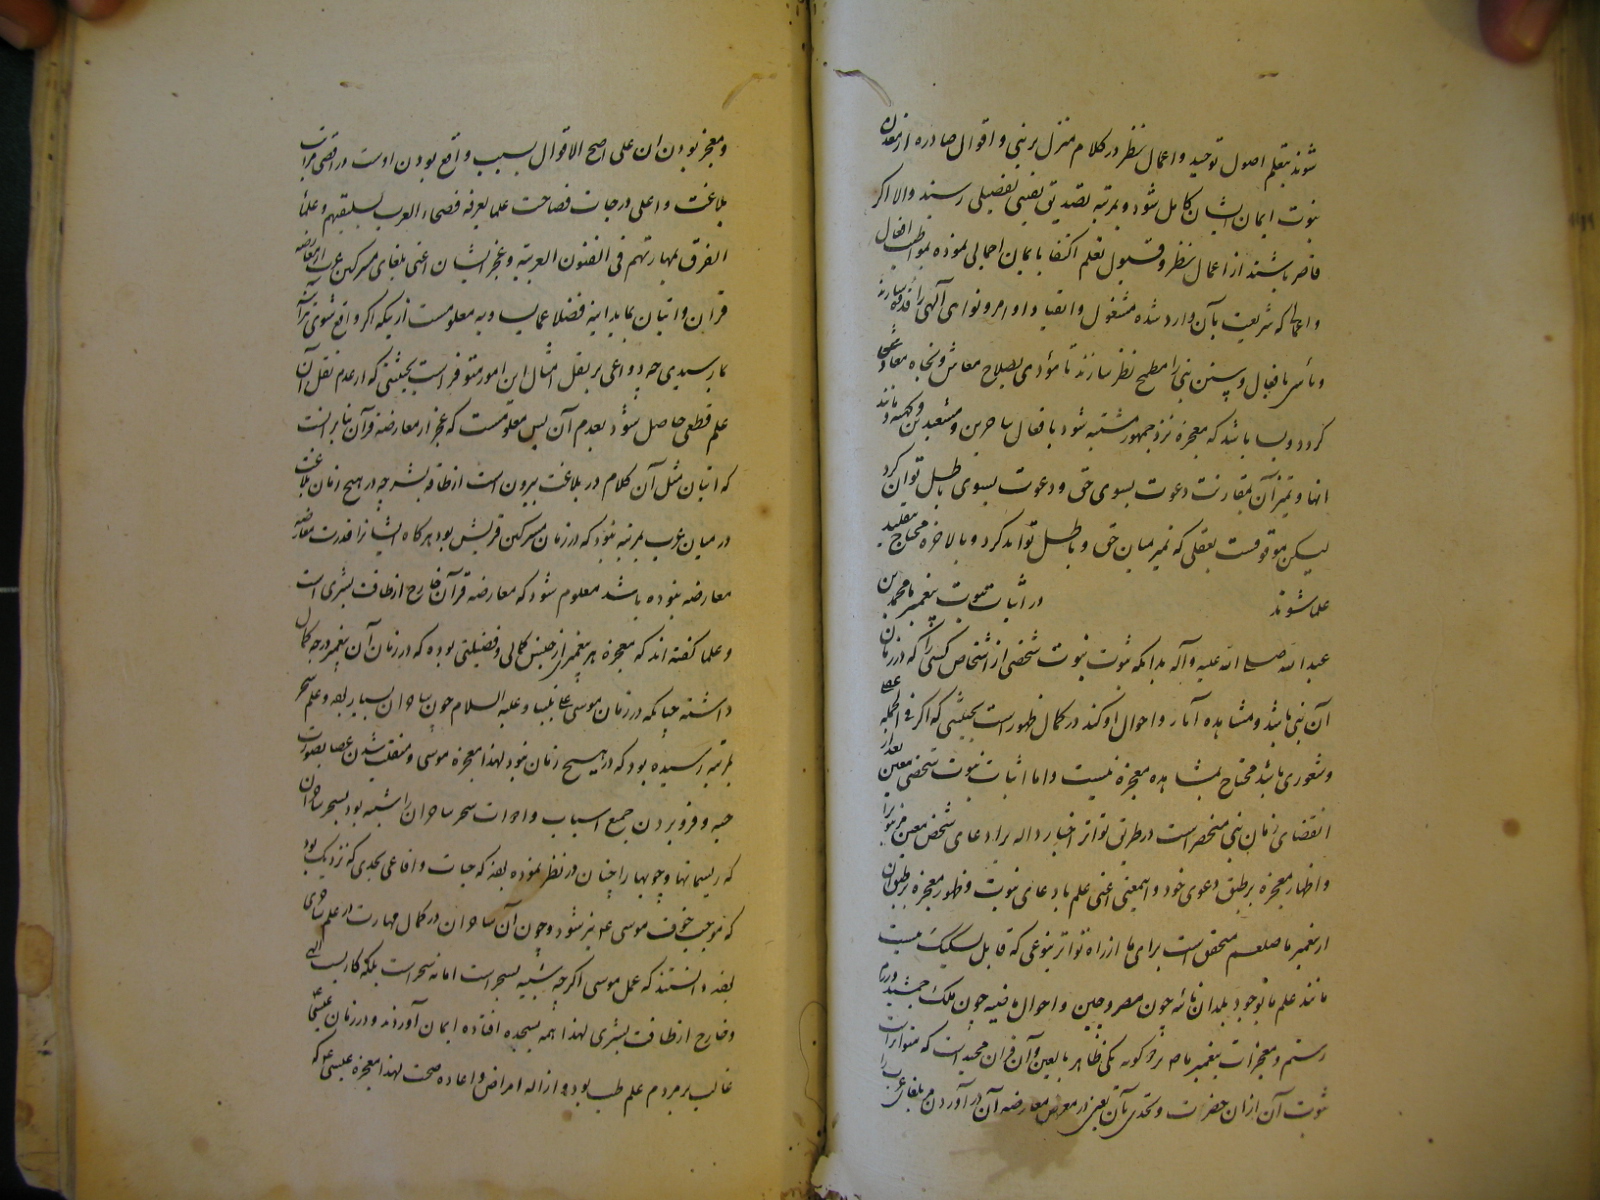 شوند بتعلم اصول توحید و اعمال نظر در کلام منزل بر نبی و اقوال صادره از معدن
نبوت ایمان ایشان کامل شود و بمرتبه تصدیق یقینی تفصیلی رسند والا اکر
قاصر باشند از اعمال نظر و قبول تعلم اکتفا بایمان اجمالی نموده بمواظبت افعال
و اعمالی که شریعت بآن وارد شده مشغول و انقیاد اوامر و نواهی آلهی را قدوه سازند
و تأسی بافعال و سنن نبی را مطمح نظر سازند تا مؤدی بصلاح معاش و نجاة معاد
کردد و بسا باشد که معجزه نزد جمهور مشتبه شود بافعال ساحرین و مشعبدین و کهنه و مانند
انها و تمیز آن بمقارنت دعوت بسوی حق و دعوت بسوی باطل توان کرد
لیکن موقوفست بعقلی که تمیز میان حق و باطل تواند کرد و بالاخره محتاج بتقلید
علما شوند در اثبات نبوت پیغمبر ما محمد بن
عبد الله صلی الله علیه و آله بدانکه ثبوت نبوت شخصی از اشخاص کسی را که در زمان
آن نبی باشد و مشاهده آثار و احوال او کند در کمال ظهور است بحیثیتی که اکر فی الجمله عقل
و شعوری باشد محتاج بمشاهده معجزه نیست و اما اثبات نبوت شخصی معین بعد از
انقضای زمان نبی منحصر است در طریق تواتر اخبار داله بر ادعای شخص معین مر نبوت را
و اظهار معجزه بر طبق دعوی خود و اینمعنی اعنی علم بادعای نبوت و ظهور معجزه بر طبق آن
از پیغمبر ما صلعم متحقق است برای ما از راه تواتر بنوعی که قابل تشکیک نیست
مانند علم ما بوجود بلدان نائه چون مصر و چین و احوال ماضیه چون ملک جمشید و رزم
رستم و معجزات پیغمبر ما ص بر دو کونه یکی ظاهر بالعین و آن قرآن مجید است که متواتر است
ثبوت آن از ان حضرت و تحدی بآن یعنی در معرض معارضه آن در آوردن بلغای عرب را
و معجز بودن ان علی اصح الاقوال بسبب واقع بودن اوست در اقصی مراتب
بلاغت و اعلی درجات فصاحت علما یعرفه فصحاء العرب بسلیقتهم و علماء
الفرق بمهارتهم فی الفنون العربیة و عجز ایشان اعنی بلغای مشرکین عرب از معارضه
قرآن و اتیان بما یدانیه فضلا عما یساویه معلومست از نیکه اکر واقع شدی بتواتر
بما رسیدی چه دواعی بر نقل امثال این امور متوفر است بحیثیتی که از عدم نقل آن
علم قطعی حاصل شود بعدم آن پس معلومست که عجز از معارضه قرآن بنابر آنست
که اتیان مثل آن کلام در بلاغت بیرون است از طاقه بشر چه در هیچ زمان بلاغت
در میان عرب بمرتبه نبود که در زمان مشرکین قریش بود هرکاه ایشانرا قدرت معارضه
معارضه نبوده باشد معلوم شود که معارضه قرآن خارج از طاقت بشری است
و علما کفته اند که معجزه هر پیغمبری از جنس کمالی و فضیلتی بوده که در زمان آن پیغمبر درجه کمال
داشته چنانکه در زمان موسی علی نبینا و علیه السلام چون ساحران بسیار بودند و علم سحر
بمرتبه رسیده بود که در هیچ زمان نبود لهذا معجزه موسی و منقلب شدن عصا بصورت
حیه و فرو بردن جمیع اسباب و ادوات سحر ساحران را اشبه بود بسحر ساحران
که ریسمانها و چوبها را چنان در نظر نموده بودند که حیات و افاعی بحدی که نزدیک بود
که موجب خوف موسی ع نیز شود و چون آن ساحران در کمال مهارت در علم ساحری
بودند دانستند که عمل موسی اکر چه شبیه بسحر است اما نه سحر است بلکه کاریست الهی
و خارج از طاقت بشری لهذا همه بسجده افتاده ایمان آوردند و در زمان عیسی ع
غالب بر مردم علم طب بود و ازاله امراض و اعاده صحت لهذا معجزه عیسی ع که